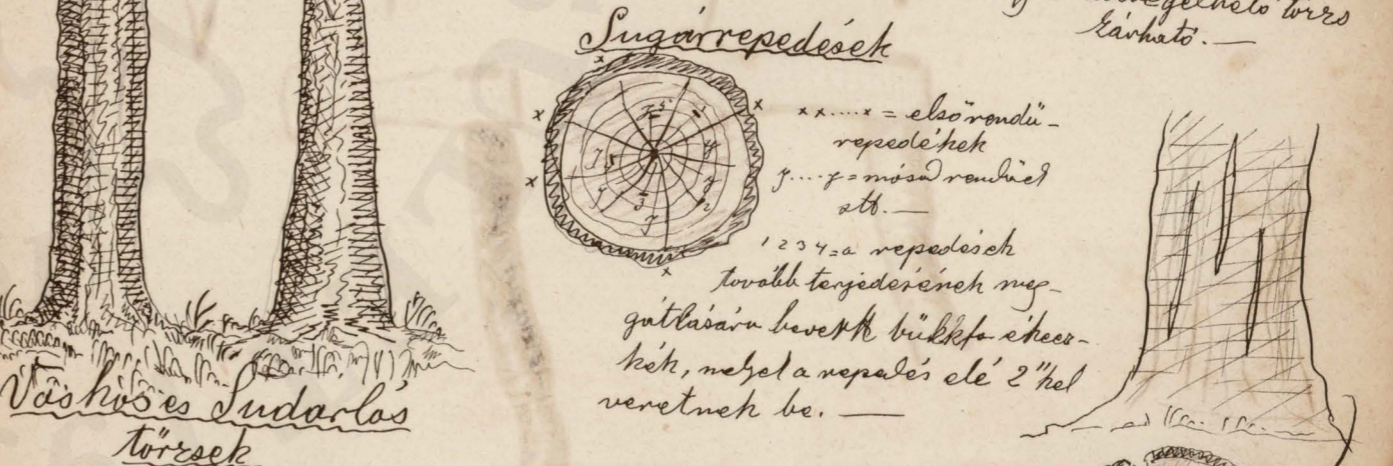 törzs
zárható. —
Sugárrepedések
x x ..... x = elsőrendű-
repedések
y .... y = másodrendüek
stb. —
1 2 3 4 = a repedések
tovább terjedésének meg-
gátlására bevert bükkfa ékecs-
kék, melyek a repedés elé 2"kel
veretnek be. —
és Sudarlós
törzsek